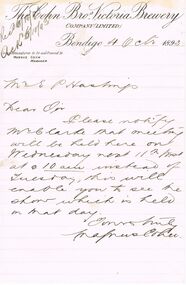 The Cohn Bros Victoria Brewery
COMPANY LIMITED
Bendigo 4 Octr 1893
MANAGER
Mr E P Hastings
Dear Sir
Please notify
Mr Clarke that meeting
will be held here on
Wednesday next 11th Inst
at 10 am instead of
Tuesday, this will
enable you to see the
show which is held
on that day.
Yours truly
Magnus Cohn